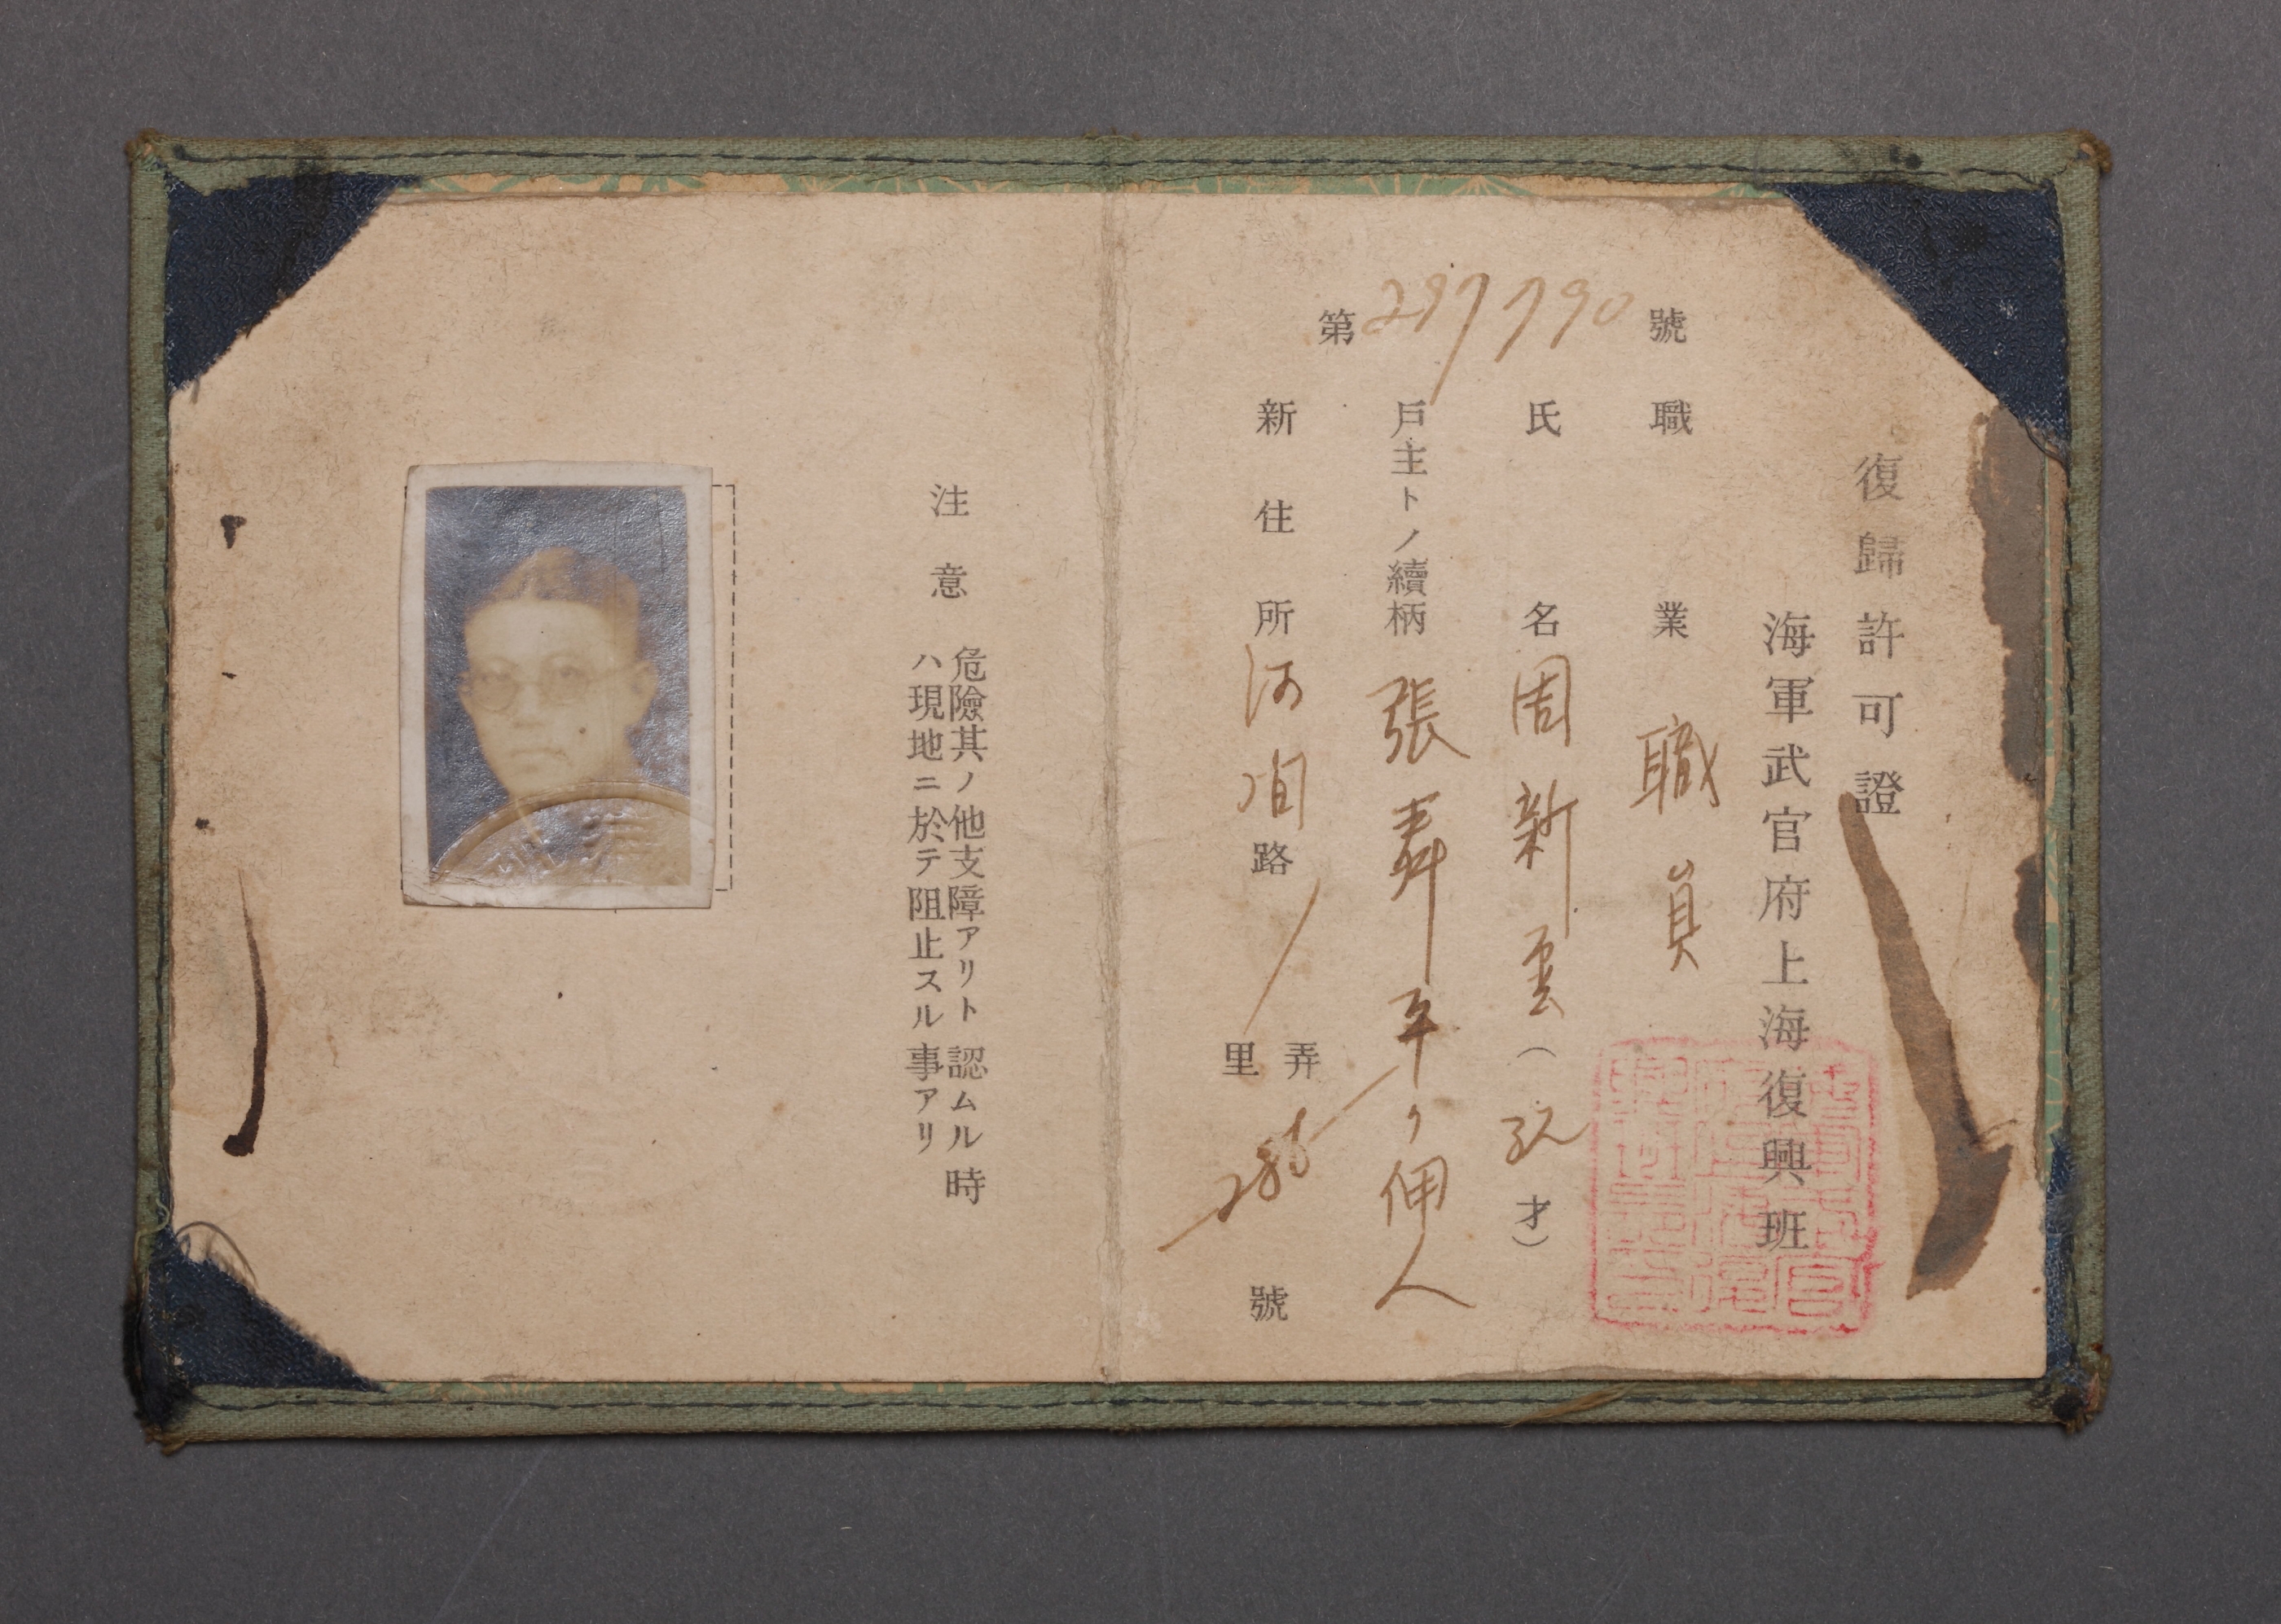 復歸許可證
海軍武官府上海復興班
第297790號
職業 職員
氏名 周新雲(
才)
戶主トノ續柄 張
人
新住所 河間路
弄
里
286
號
注意
危險其ノ他支障アリト認ムル時
ハ現地ニ於テ阻止スル事アリ